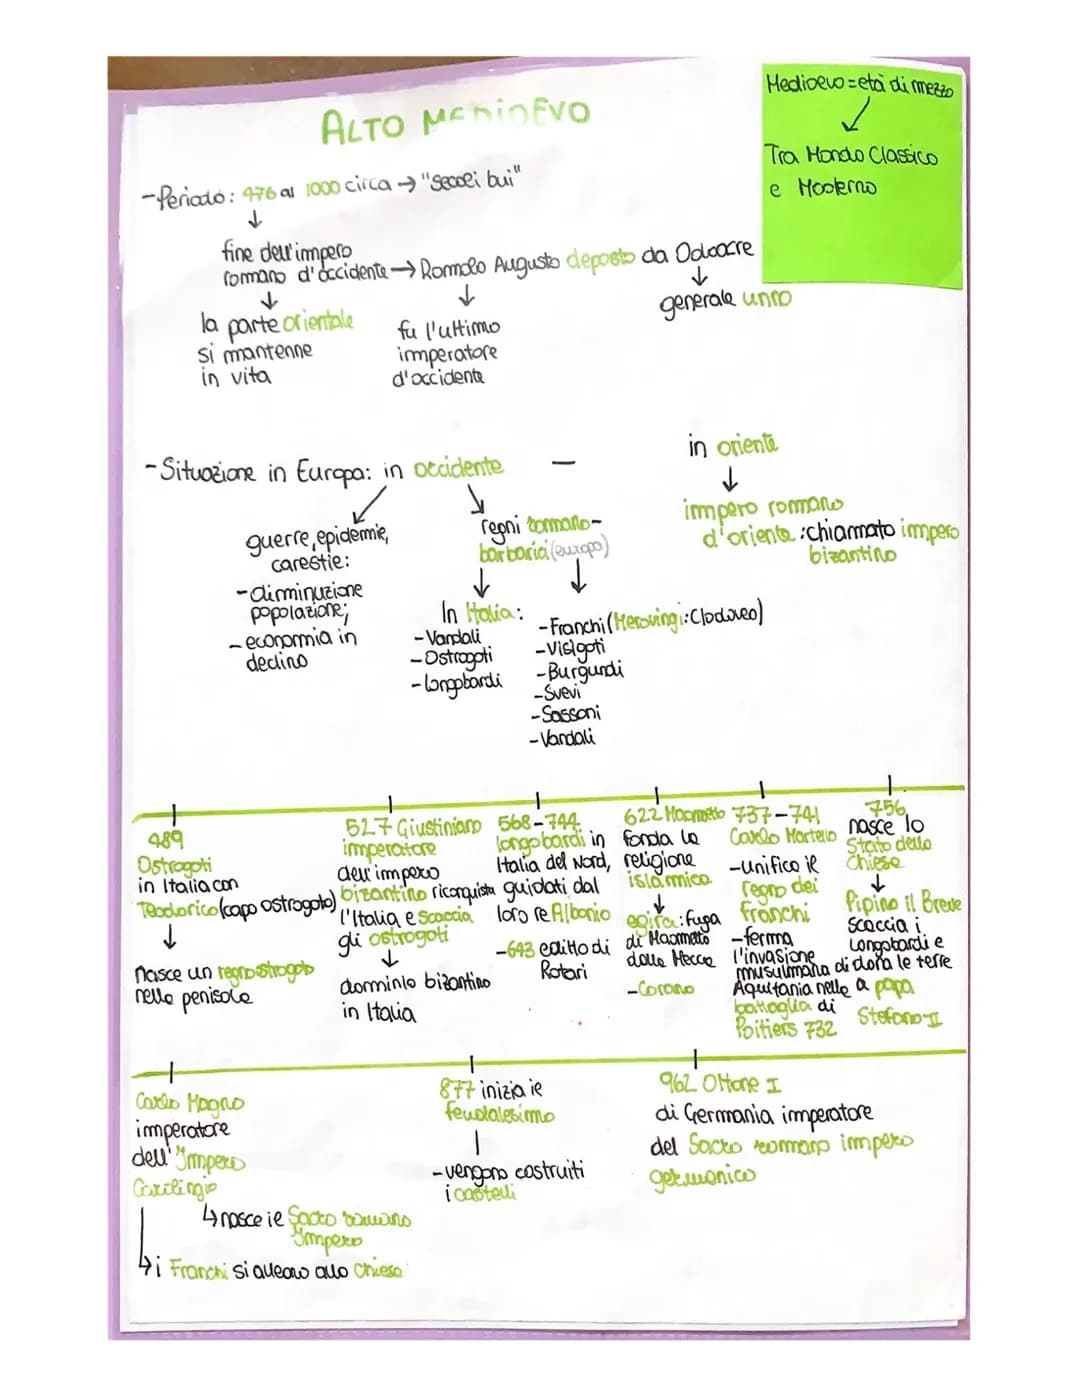 ALTO MEDIOEVO
Medioevo = età di mezzo
Tra Mondo Classico
e Moderno
- Periodo: 476 al 1000 circa → "secoli bui"
fine dell'impero
romano d'occidente → Romolo Augusto deposto da Odoacre
generale unno
la parte orientale
si mantenne
in vita
fu l'ultimo
imperatore
d'occidente
- Situazione in Europa: in occidente —
in oriente
guerre, epidemie,
carestie:
- diminuzione
popolazione;
- economia in
declino
regni romano-
barbarici (europa)
In Italia:
- Vandali
- Ostrogoti
- Longobardi
- Franchi (Merovingi: Clodoveo)
- Visigoti
- Burgundi
- Svevi
- Sassoni
- Vandali
impero romano
d'oriente: chiamato impero
bizantino
489
Ostrogoti
in Italia con
Teodorico (capo ostrogoto)
nasce un regno ostrogoto
nella penisola
527 Giustiniano
imperatore
dell'impero
bizantino riconquista
l'Italia e scaccia
gli ostrogoti
dominio bizantino
in Italia
568-744
longobardi in
Italia del Nord,
guidati dal
loro re Alboino
- 643 editto di
Rotari
622 Maometto
fonda la
religione
islamica
egira: fuga
di Maometto
dalla Mecca
- Corano
737-741
Carlo Martello
- unifico il
regno dei
franchi
- ferma
l'invasione
musulmana di
Aquitania nella
battaglia di
Poitiers 732
756
nasce lo
Stato della
Chiesa
Pipino il Breve
scaccia i
Longobardi e
dona le terre
a papa
Stefano II
Carlo Magno
imperatore
dell'Impero
Carolingio
↳ nasce il Sacro romano
Impero
↳ i Franchi si alleano alla Chiesa
877 inizia il
feudalesimo
- vengono costruiti
i castelli
962 Ottone I
di Germania imperatore
del Sacro romano impero
germanico